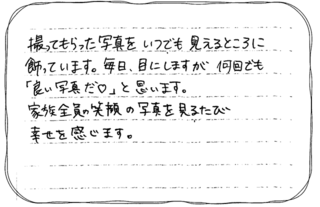 撮ってもらった写真をいつでも見えるところに
飾っています。毎日、目にしますが何回でも
「良い写真だ♡」と思います。
家族全員の笑顔の写真を見るたび
幸せを感じます。